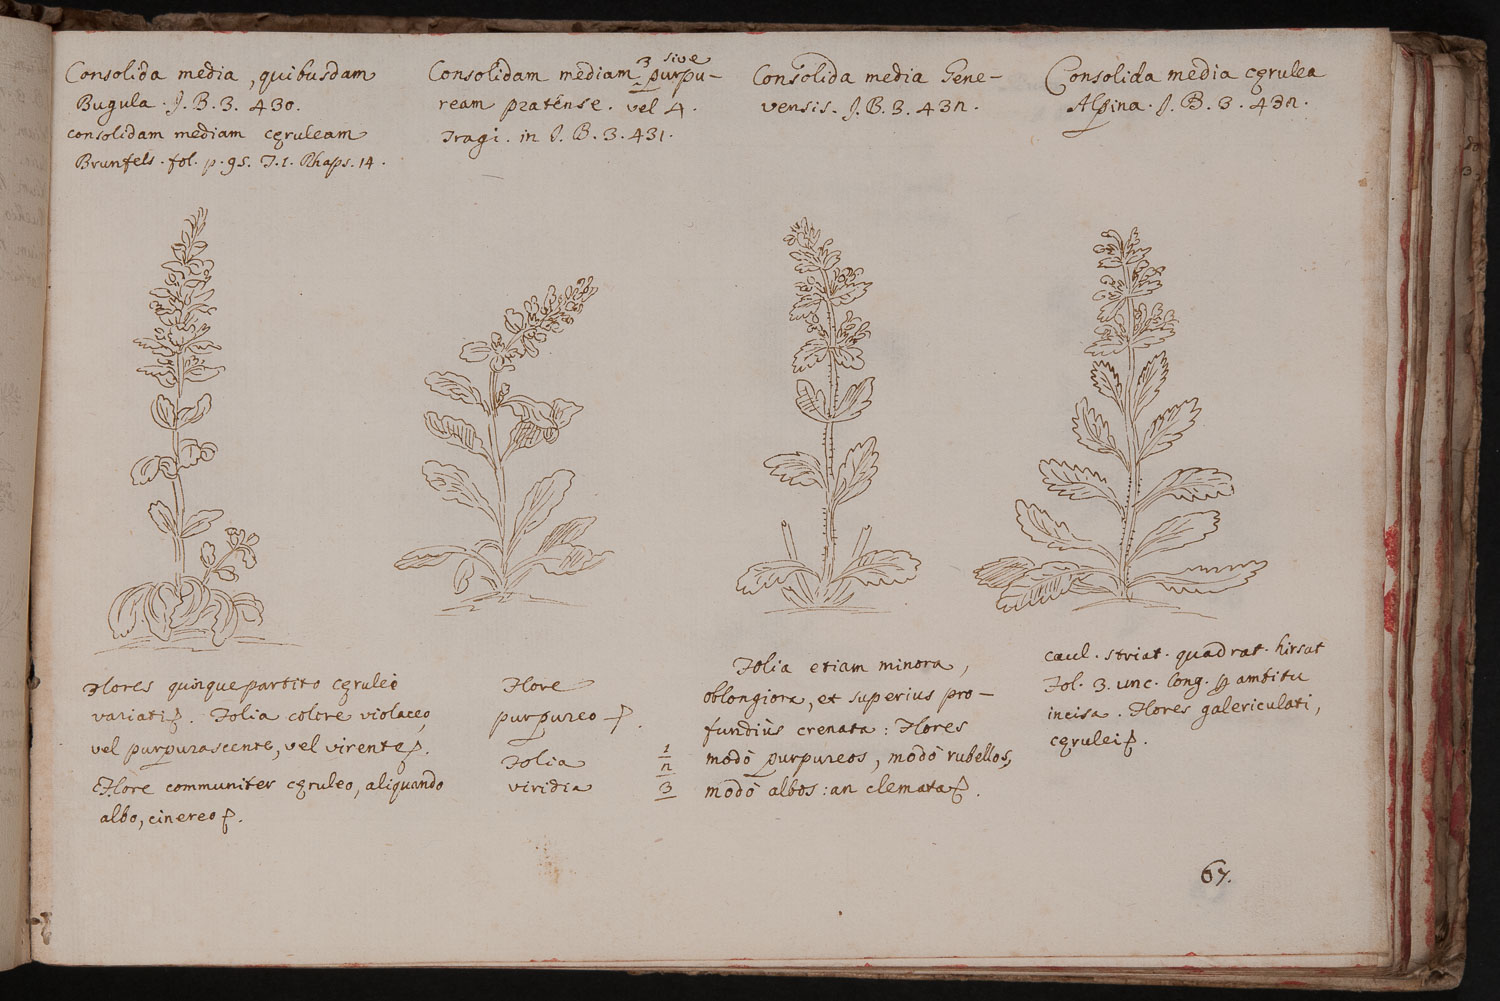 Consolida media, quibusdam
Bugula. J. B. 3. 430.
consolidam mediam cęruleam
Brunfels. fol. p. 95. T. 1. Rhaps. 14.
Consolidam mediam 3 sive purpu-
ream pratense. vel 4.
Tragi. in J. B. 3. 431.
Consolida media Gene-
vensis. J. B. 3. 432.
Consolida media cęrulea
Alpina. J. B. 3. 432.
Flores quinque partito cęrulei
variati
Folia colore violaceo,
vel purpurascente, vel virente
Flore communiter cęruleo, aliquando
albo, cinereo
Flore
purpureo
Folia
viridia
1
2
3
Folia etiam minora,
oblongiora, et superius pro-
fundiùs crenata: Flores
modò purpureos, modò rubellos,
modò albos: an clemata
caul. striat. quadrat. hirsut
Fol. 3. unc. long. p ambitu
incisa. Flores galericulati,
cęrulei
67.